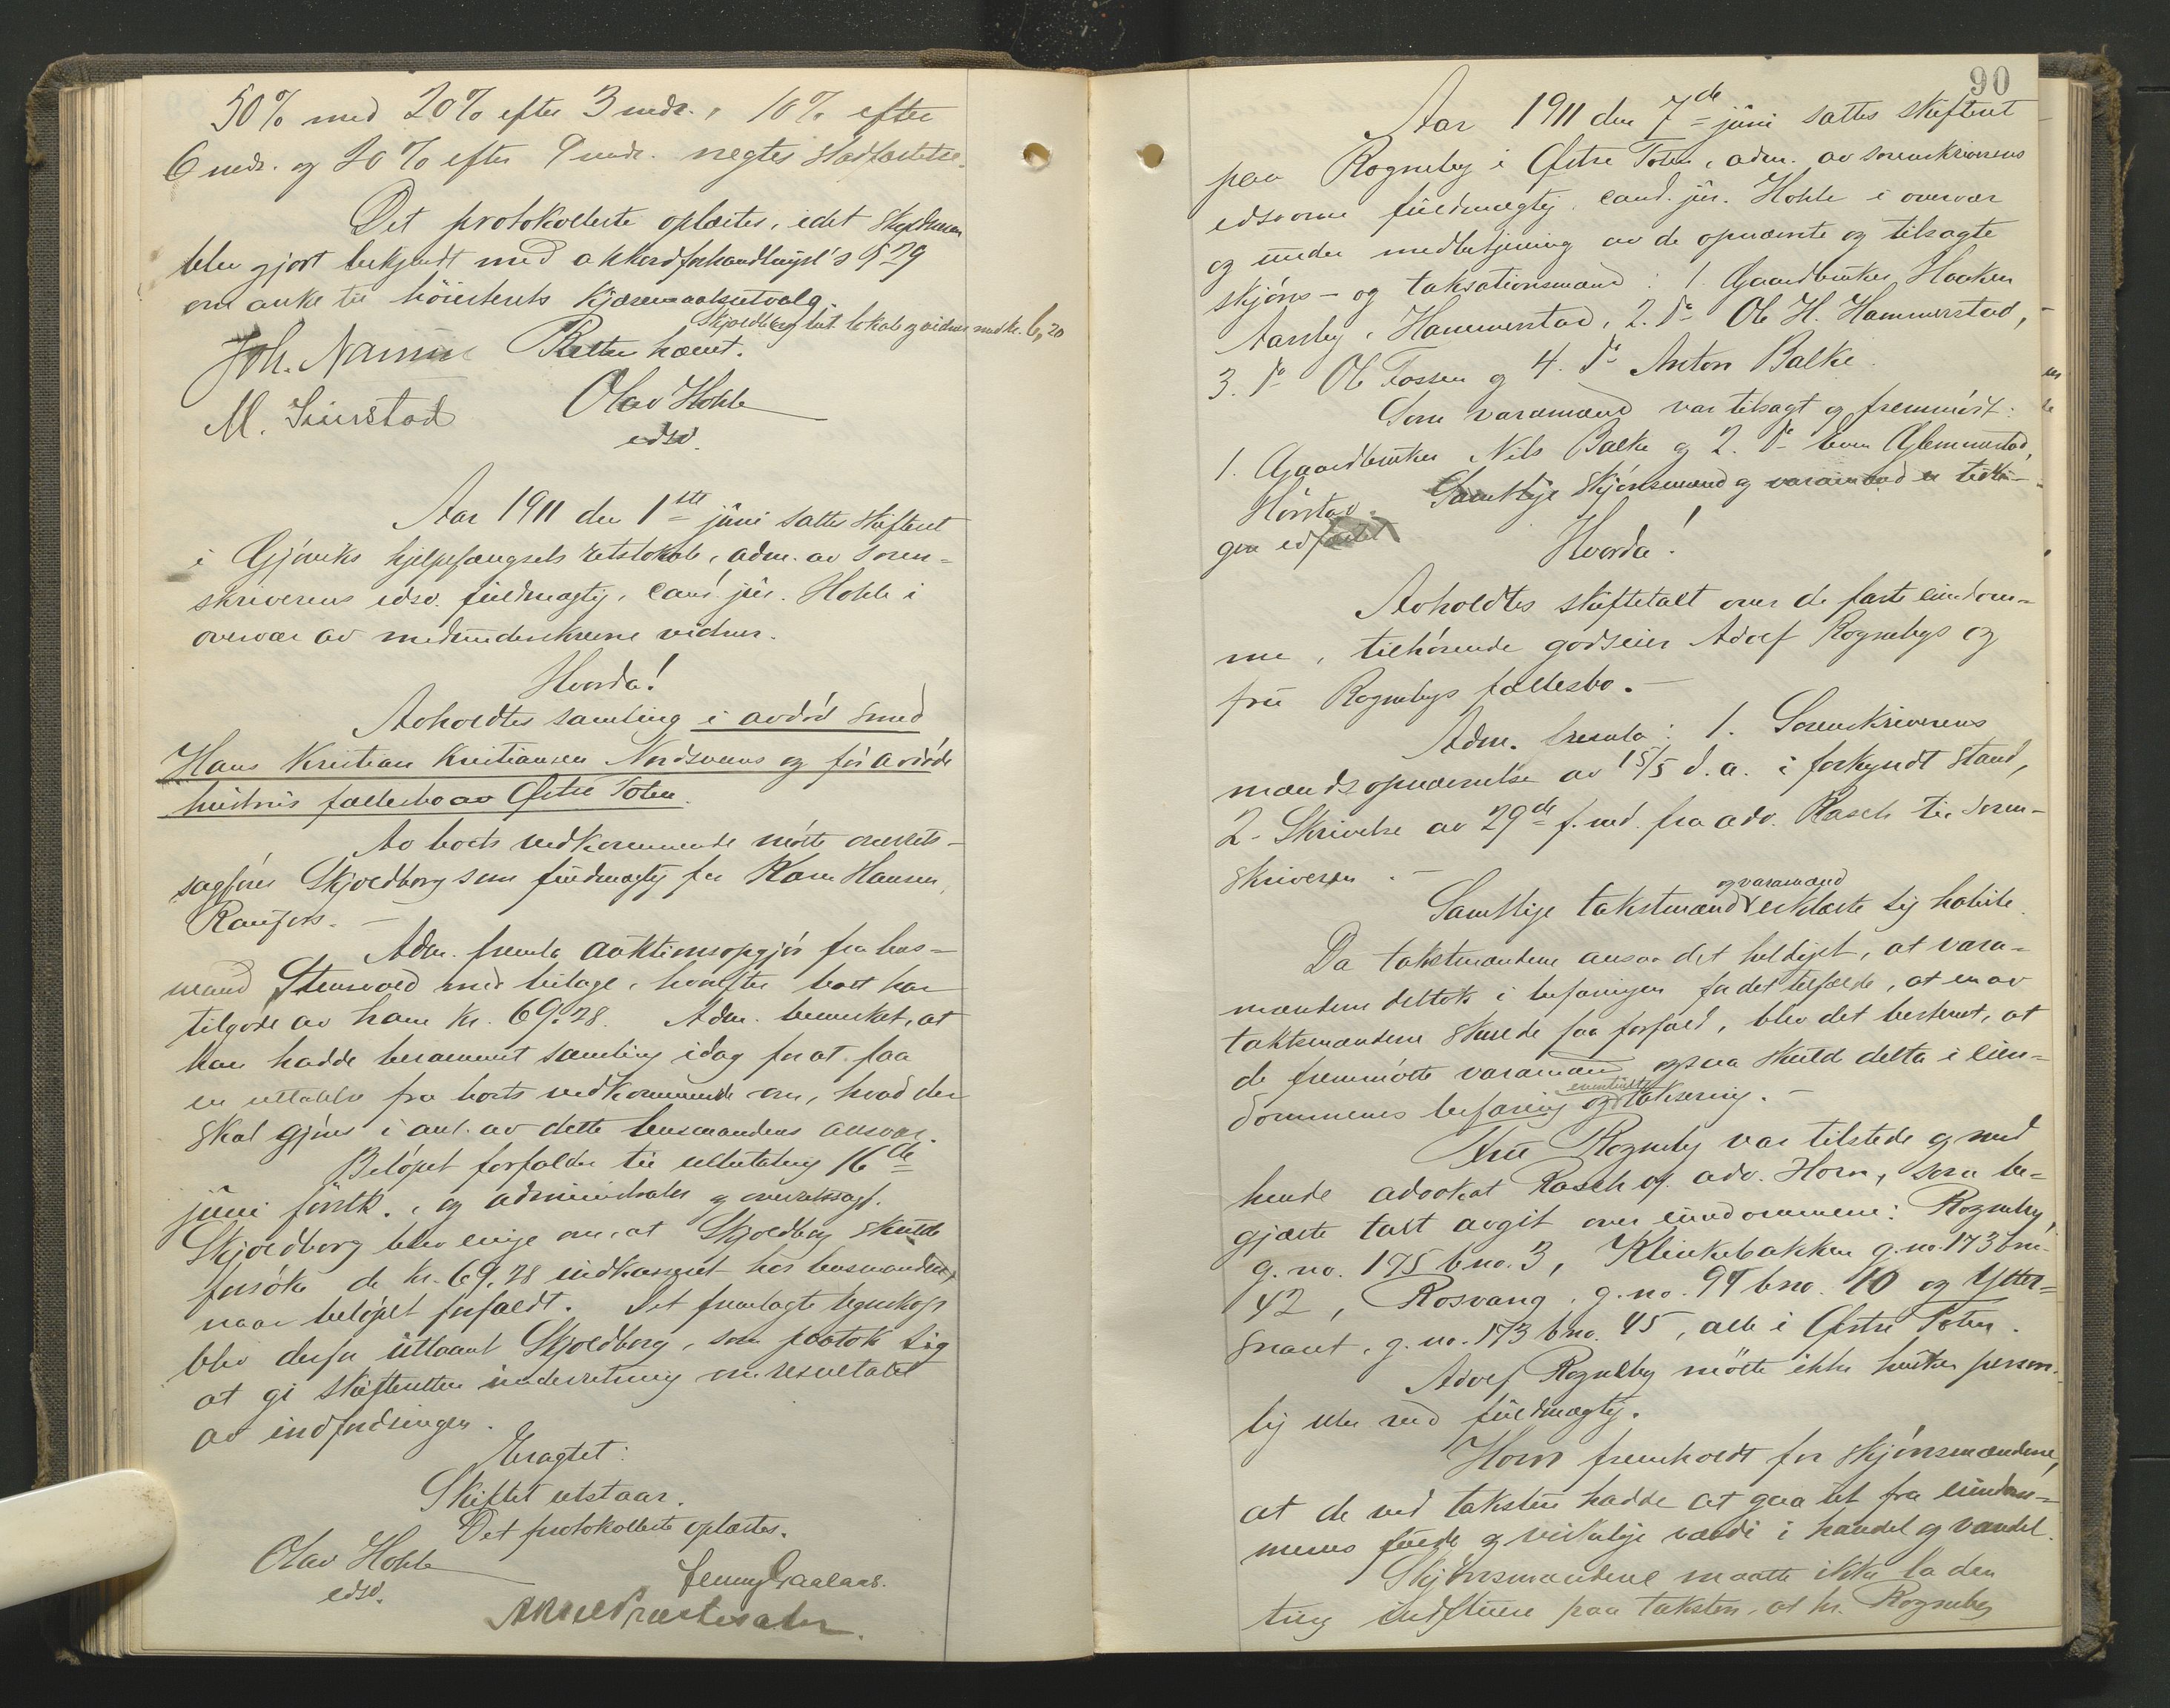 50% med 20% efter 3 mdr., 10% efter
6 mdr. og 20% efter 9 mdr. negtes stadfæstelse.
Det protokollerte oplæstes, idet skyldneren
blev gjort bekjendt med akkordforhandlingsl's § 29
om anke til høiesterets kjæremaalsutvalg.
Skjoldborg bet. lokale og vidner med kr. 6,20
Joh. Narum Retten hævet.
M. Olav Hohle
edsv.
Aar 1911 den 1ste juni sattes skifteret
i Gjøviks hjelpefængsels retslokale, adm. av soren-
skriverens edsv. fuldmægtig, cand. jur. Hohle i
overvær av medunderskrevne vidner.
Hvorda!
Avholdtes samling i avdød smed
Hans Kristian Kristiansen Nordsveens og før avdøde
hustrus fællesbo av Østre Toten.
Av boets vedkommende møtte overrets-
sagfører Skjoldborg som fuldmægtig for Karen Hansen,
Raufoss. -
Adm. fremla auktionsopgjør fra lens-
mand Stensvold med bilage, hvorefter boet har
tilgode av ham kr. 69,28. Adm. bemerket, at
han hadde berammet samling idag for at faa
en uttalelse fra boets vedkommende om, hvad der
skal gjøres i anl. av dette lensmandens ansvar.
Beløpet forfalder til utbetaling 16de
juni førstk., og administrator og overretssagf.
Skjoldborg blev enige om, at Skjoldborg skulde
forsøke de kr. 69,28 indkasseret hos lensmanden,
naar beløpet forfaldt. Det fremlagte regnskap
blev derfor utlaant Skjoldborg, som paatok sig
at gi skifteretten underretning om resultatet
av indfordringen.
Eragtet:
Skiftet utstaar.
Det protokollerte oplæstes.
Olav Hohle
edsv. Jenny Gaalaas.
90
Aar 1911 den 7de juni sattes skifteret
paa Rogneby i Østre Toten, adm. av sorenskriverens
edsvorne fuldmægtig, cand. jur. Hohle i overvær
og under medbetjening av de opnævnte og tilsagte
skjøns- og taksationsmænd: 1. Gaardbruker Haaken
Aarsby, Hammerstad, 2. do Ole H. Hammerstad,
3. do Ole Fossen og 4. do Anton Balke.
Som varamænd var tilsagt og fremmøtt:
1. Gaardbruker Nils Balke og 2. do Even Glemmestad,
Hørstad. Samtlige skjønsmænd og varamænd er tidli-
gere edfæstet
Hvorda!
Avholdtes skiftetakt over de faste eiendom-
me, tilhørende godseier Adolf Rognebys og
frue Rognebys fællesbo. -
Adm. fremla: 1. Sorenskriverens
mandsopnævnelse av 15/5 d.a. i forkyndt stand,
2. Skrivelse av 29de f.md. fra adv. Rasch til soren-
skriveren. -
og varamænd
Samtlige takstmænd erklærte sig habile.
Da takstmændene ansaa det heldigst, at vara-
mændene deltok i befaringen for det tilfælde, at en av
takstmændene skulde faa forfald, blev det bestemt, at
de fremmøtte varamænd ogsaa skulde delta i eien-
eventuelt
dommenes befaring og taksering. -
Frue Rogneby var tilstede og med
hende advokat Rasch og adv. Horn, som be-
gjærte takt avgit over eiendommene: Rogneby,
g. no. 175 bno. 3, Klinkebakken g.no. 173 bno.
42, Rosvang, g.no. 94 bno. 10 og Ytter-
snaret, g.no. 173 bno. 45, alle i Østre Toten.
Adolf Rogneby møtte ikke hverken person-
lig eller ved fuldmægtig.
Horn fremholdt for skjønsmændene,
at de ved taksten hadde at gaa ut fra eiendom-
menes fulde og virkelige værdi i handel og vandel.
Skjønsmændene maatte ikke la den
ting indfluere paa taksten, at hr. Rogneby